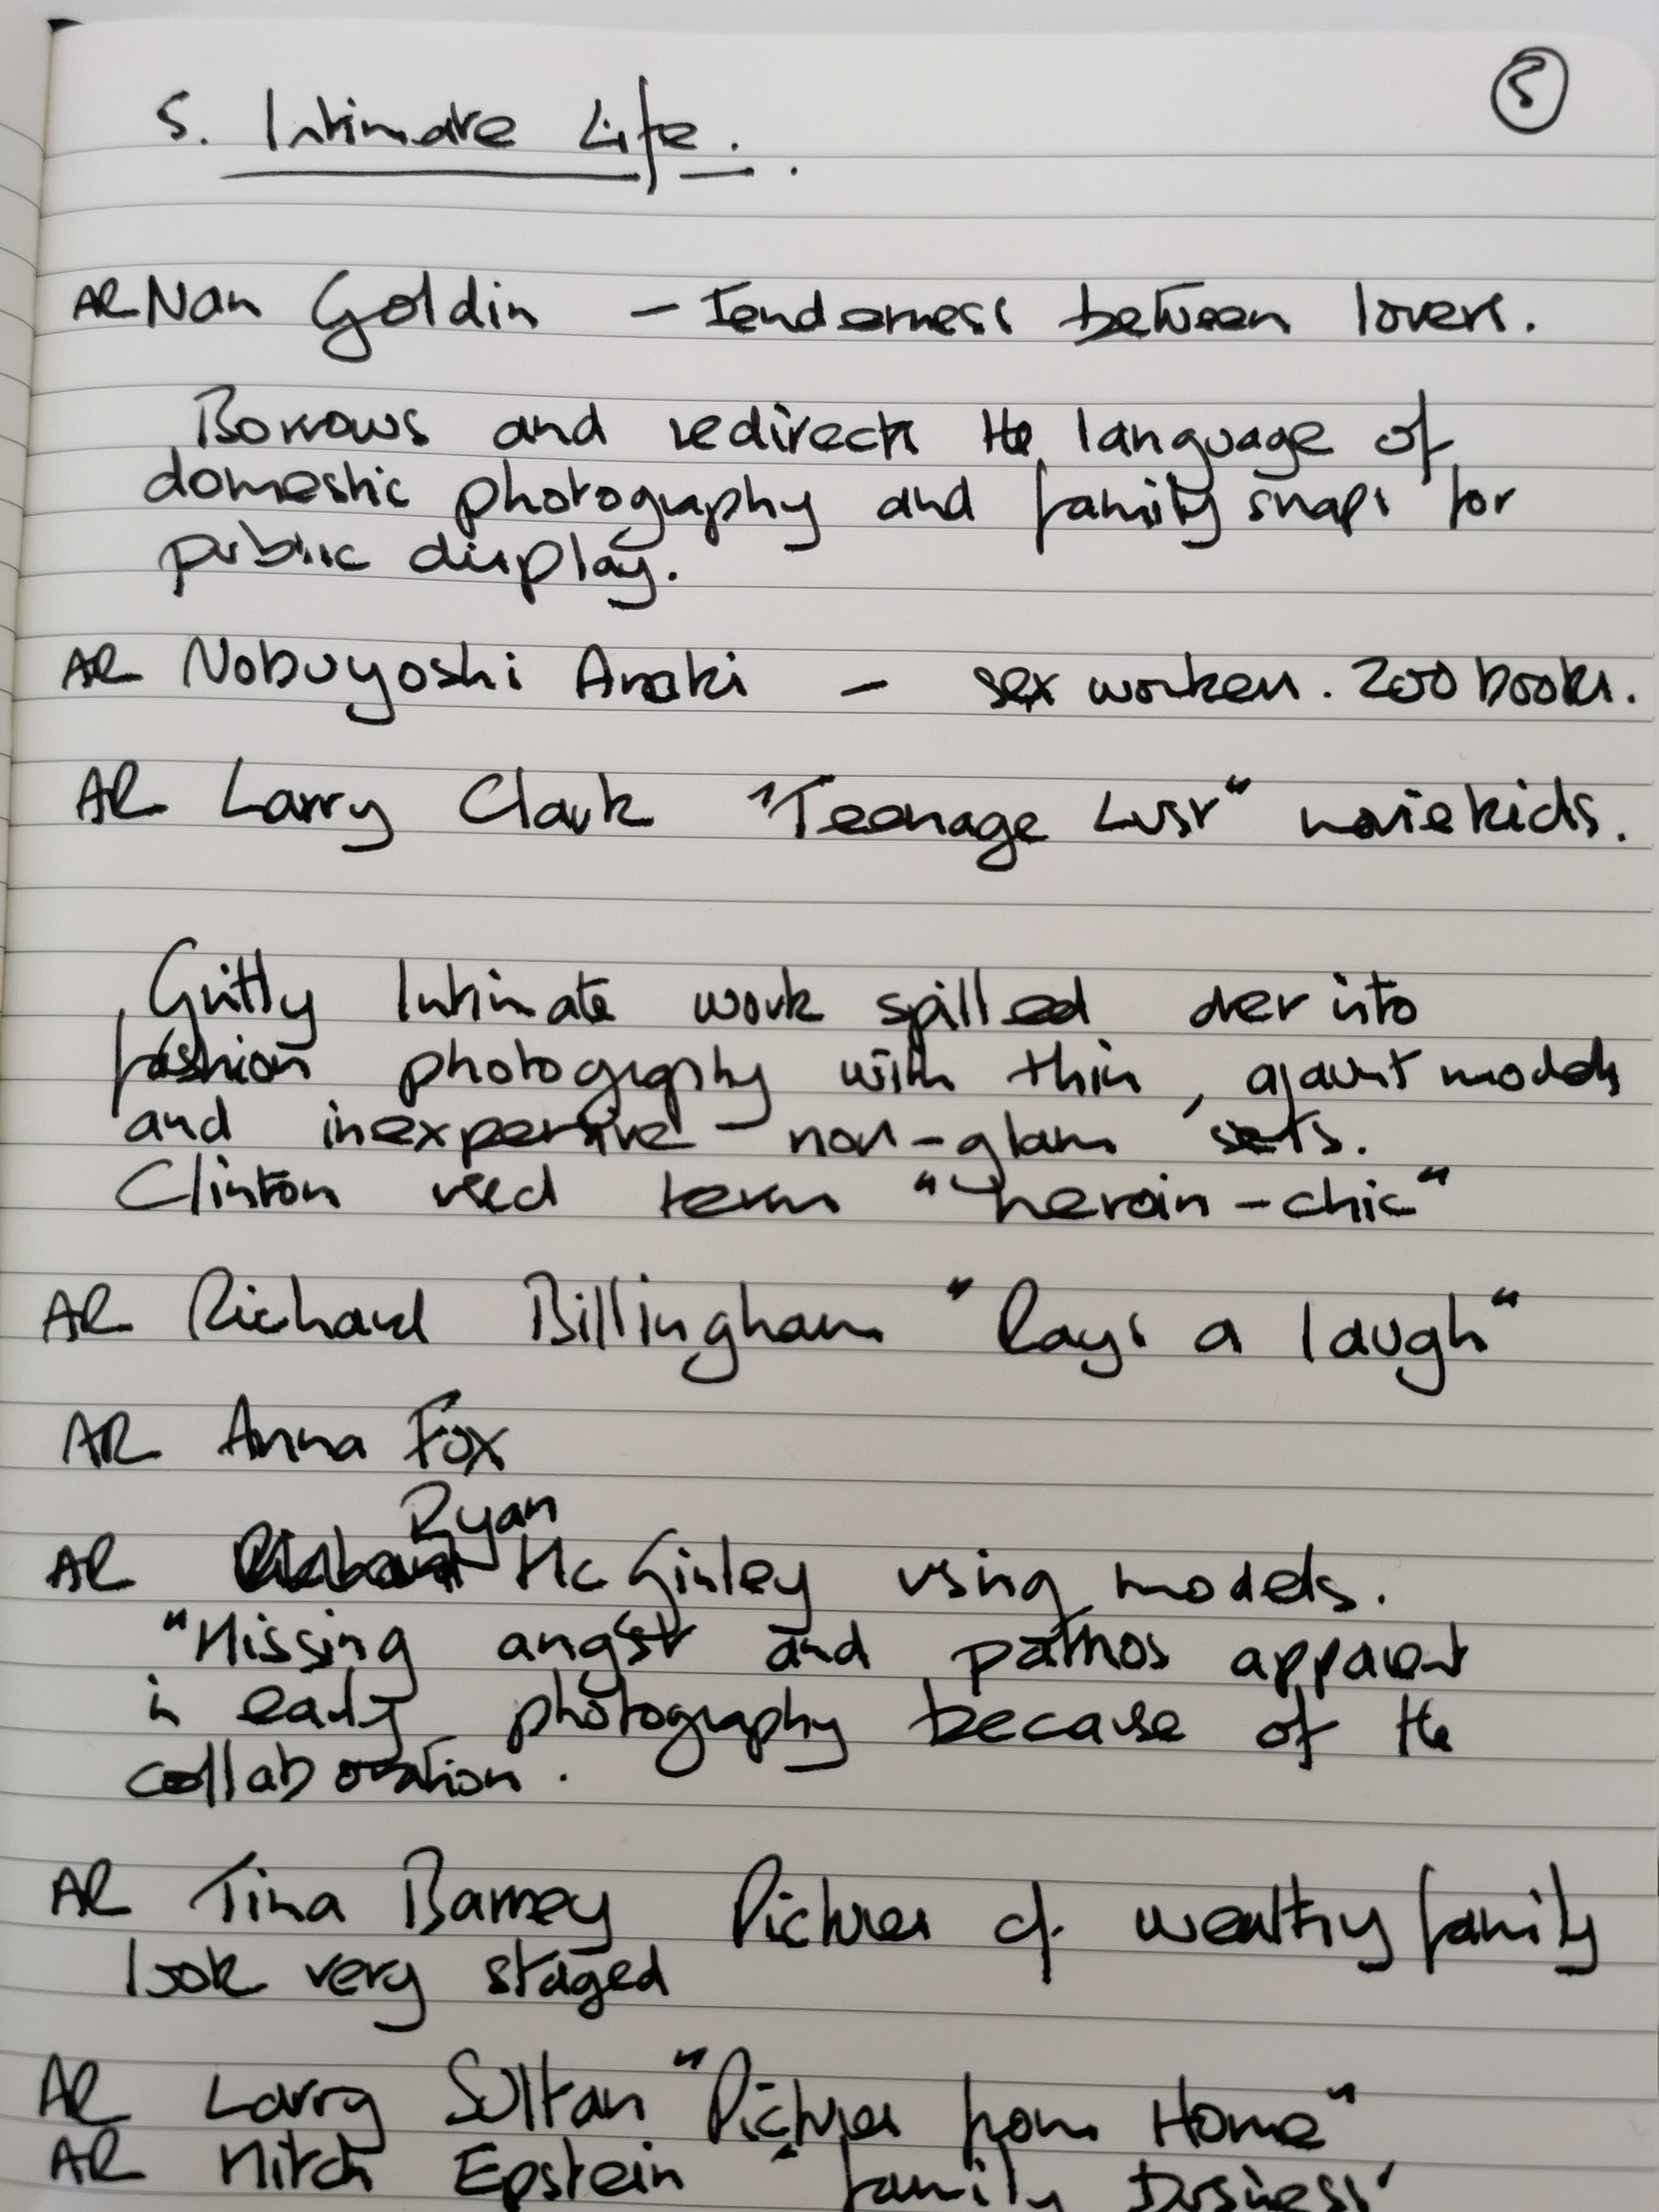 5
5. Intimate Life.
AR Nan Goldin - Tenderness between lovers.
Borrows and redirects the language of
domestic photography and family snaps for
public display.
AR Nobuyoshi Araki - sex workers. 200 books.
AR Larry Clark "Teenage Lust" movie kids.
Gritty Intimate work spilled over into
fashion photography with thin, gaunt models
and inexpensive non-glam sets.
Clinton used term "heroin-chic"
AR Richard Billingham "Rays a laugh"
AR Anna Fox
Ryan
AR McGinley using models.
"Missing angst and pathos apparent
in early photography because of the
collaboration.
AR Tina Barney Pictures of wealthy family
look very staged
AR Larry Sultan "Pictures from Home"
AR Mitch Epstein "family Business"